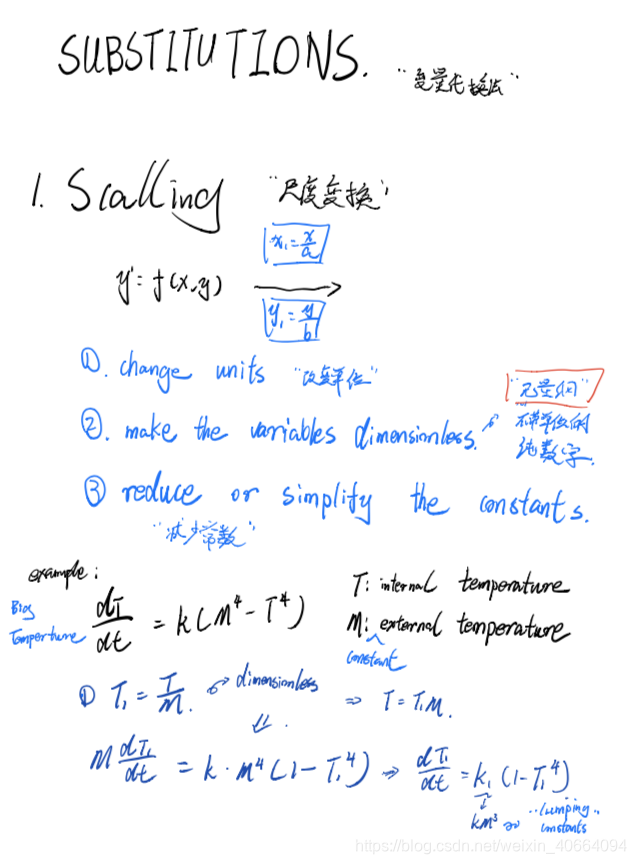 SUBSTITUTIONS. "变量代换法"
1. Scalling "尺度变换"
x₁=x/a
y'=f(x,y) ⟶
y₁=y/b
①. change units "改变单位"
"无量纲"
②. make the variables dimensionless. 不带单位的
纯数字.
③ reduce or simplify the constants.
"减少常数"
example:
Big Temperture dT/dt = k(M⁴-T⁴)
T: internal temperature
M: external temperature
constant
① T₁=T/M. dimensionless ⇒ T=T₁M.
M dT₁/dt = k·M⁴(1-T₁⁴) ⇒ dT₁/dt = k₁(1-T₁⁴)
kM³ "lumping constants"
https://blog.csdn.net/weixin_40664094